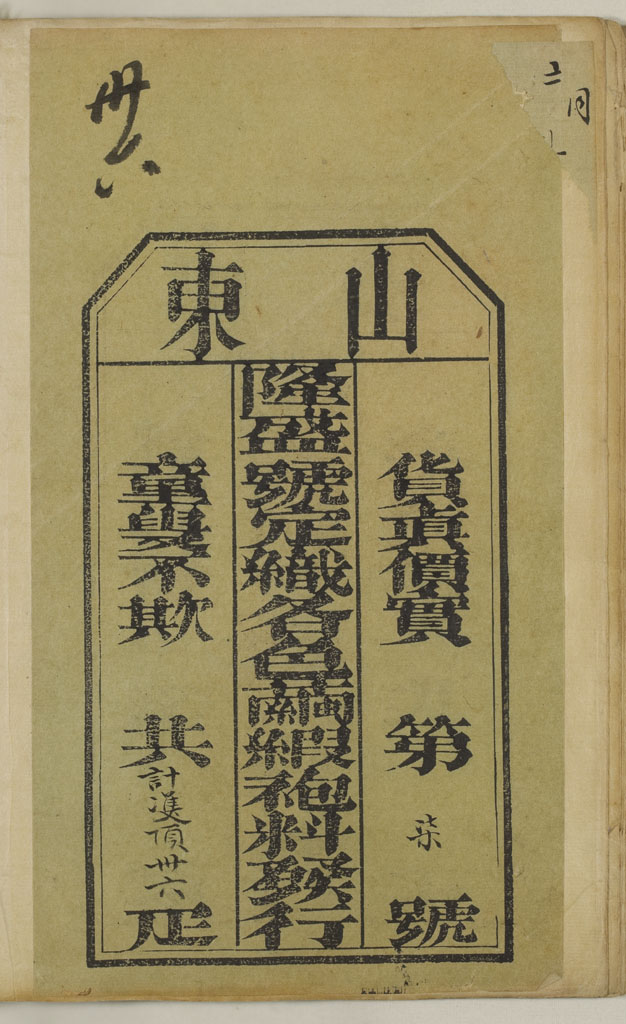 卅六
二月
山東
貨真價實 第柒號
隆盛號定織各色繭緞袍料發行
童叟不欺 共計雙頂卅六疋